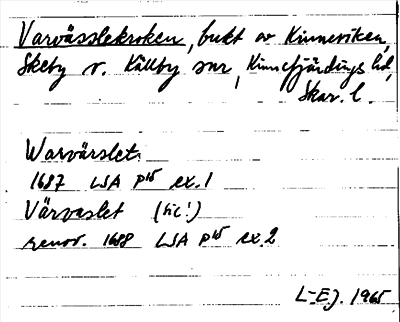 Varvässlekroken, bukt av Kinneviken,
Skeby o. Källby snr, Kinnefjärdings hd,
Skar. l.
Warvärslet.
1687 LSA P15 ex. 1
Värvaslet (sic!)
renov. 1688 LSA P15 ex. 2
L-EJ. 1965